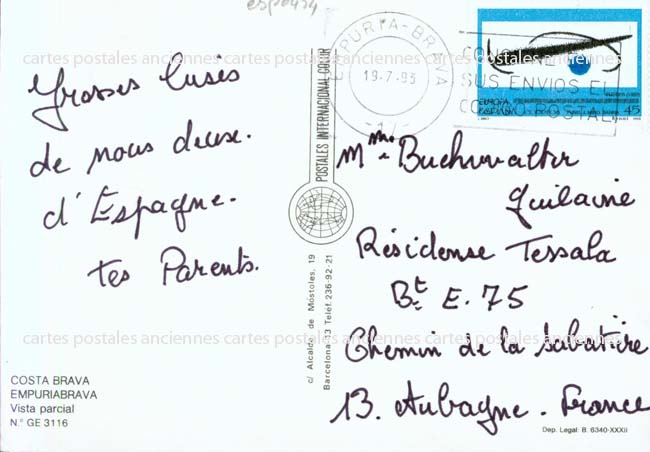 Grosses bises
de nous deux.
d'Espagne.
tes Parents.
COSTA BRAVA
EMPURIABRAVA
Vista parcial
N.° GE 3116
POSTALES INTERNACIONAL COLOR
c/ Alcalde de Móstoles, 19
Barcelona-13 Teléf. 236-92-21
EMPURIA-BRAVA
19-7-93
SUS ENVIOS EL
CODIGO POSTAL
EUROPA
ESPAÑA
45
Mme Buchwalter
Guilaine
Résidense Tessala
Bt E. 75
Chemin de la sabatière
13. Aubagne. France
Dep. Legal: B. 6340-XXXII
cartes postales anciennes cartes postales anciennes cartes postales anciennes
cartes postales anciennes cartes postales anciennes cartes postales anciennes